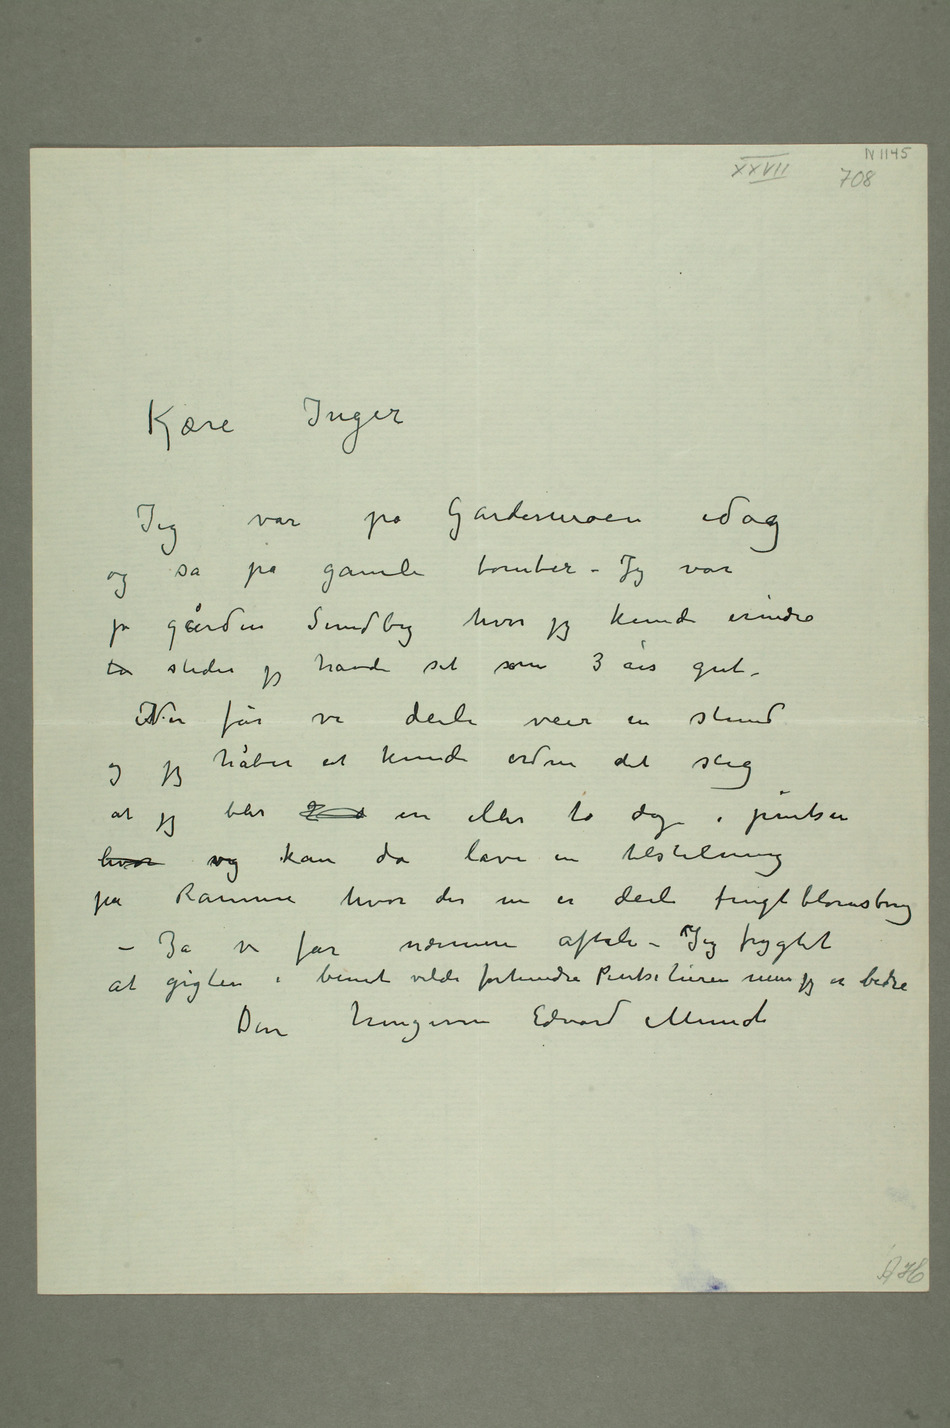 XXVII
N 1145
708
Kjære Inger
Jeg var på Gardermoen idag
og så på gamle tomter – Jeg var
på gården Sundby hvor jeg kunde erindre
to steder jeg havde set som 3 års gut –
Nu får vi deili veir en stund
og jeg håber at kunde ordne det slig
at jeg blir en eller to dage i pintsen
hvor vi kan da lave en tilstelning
på Ramme hvor der nu er deili frugtblomstring
– Ja vi får nærmere aftale – Jeg frygtet
at gigten i benet vilde forhindre Pintseturen men jeg er bedre
Din hengivne Edvard Munch